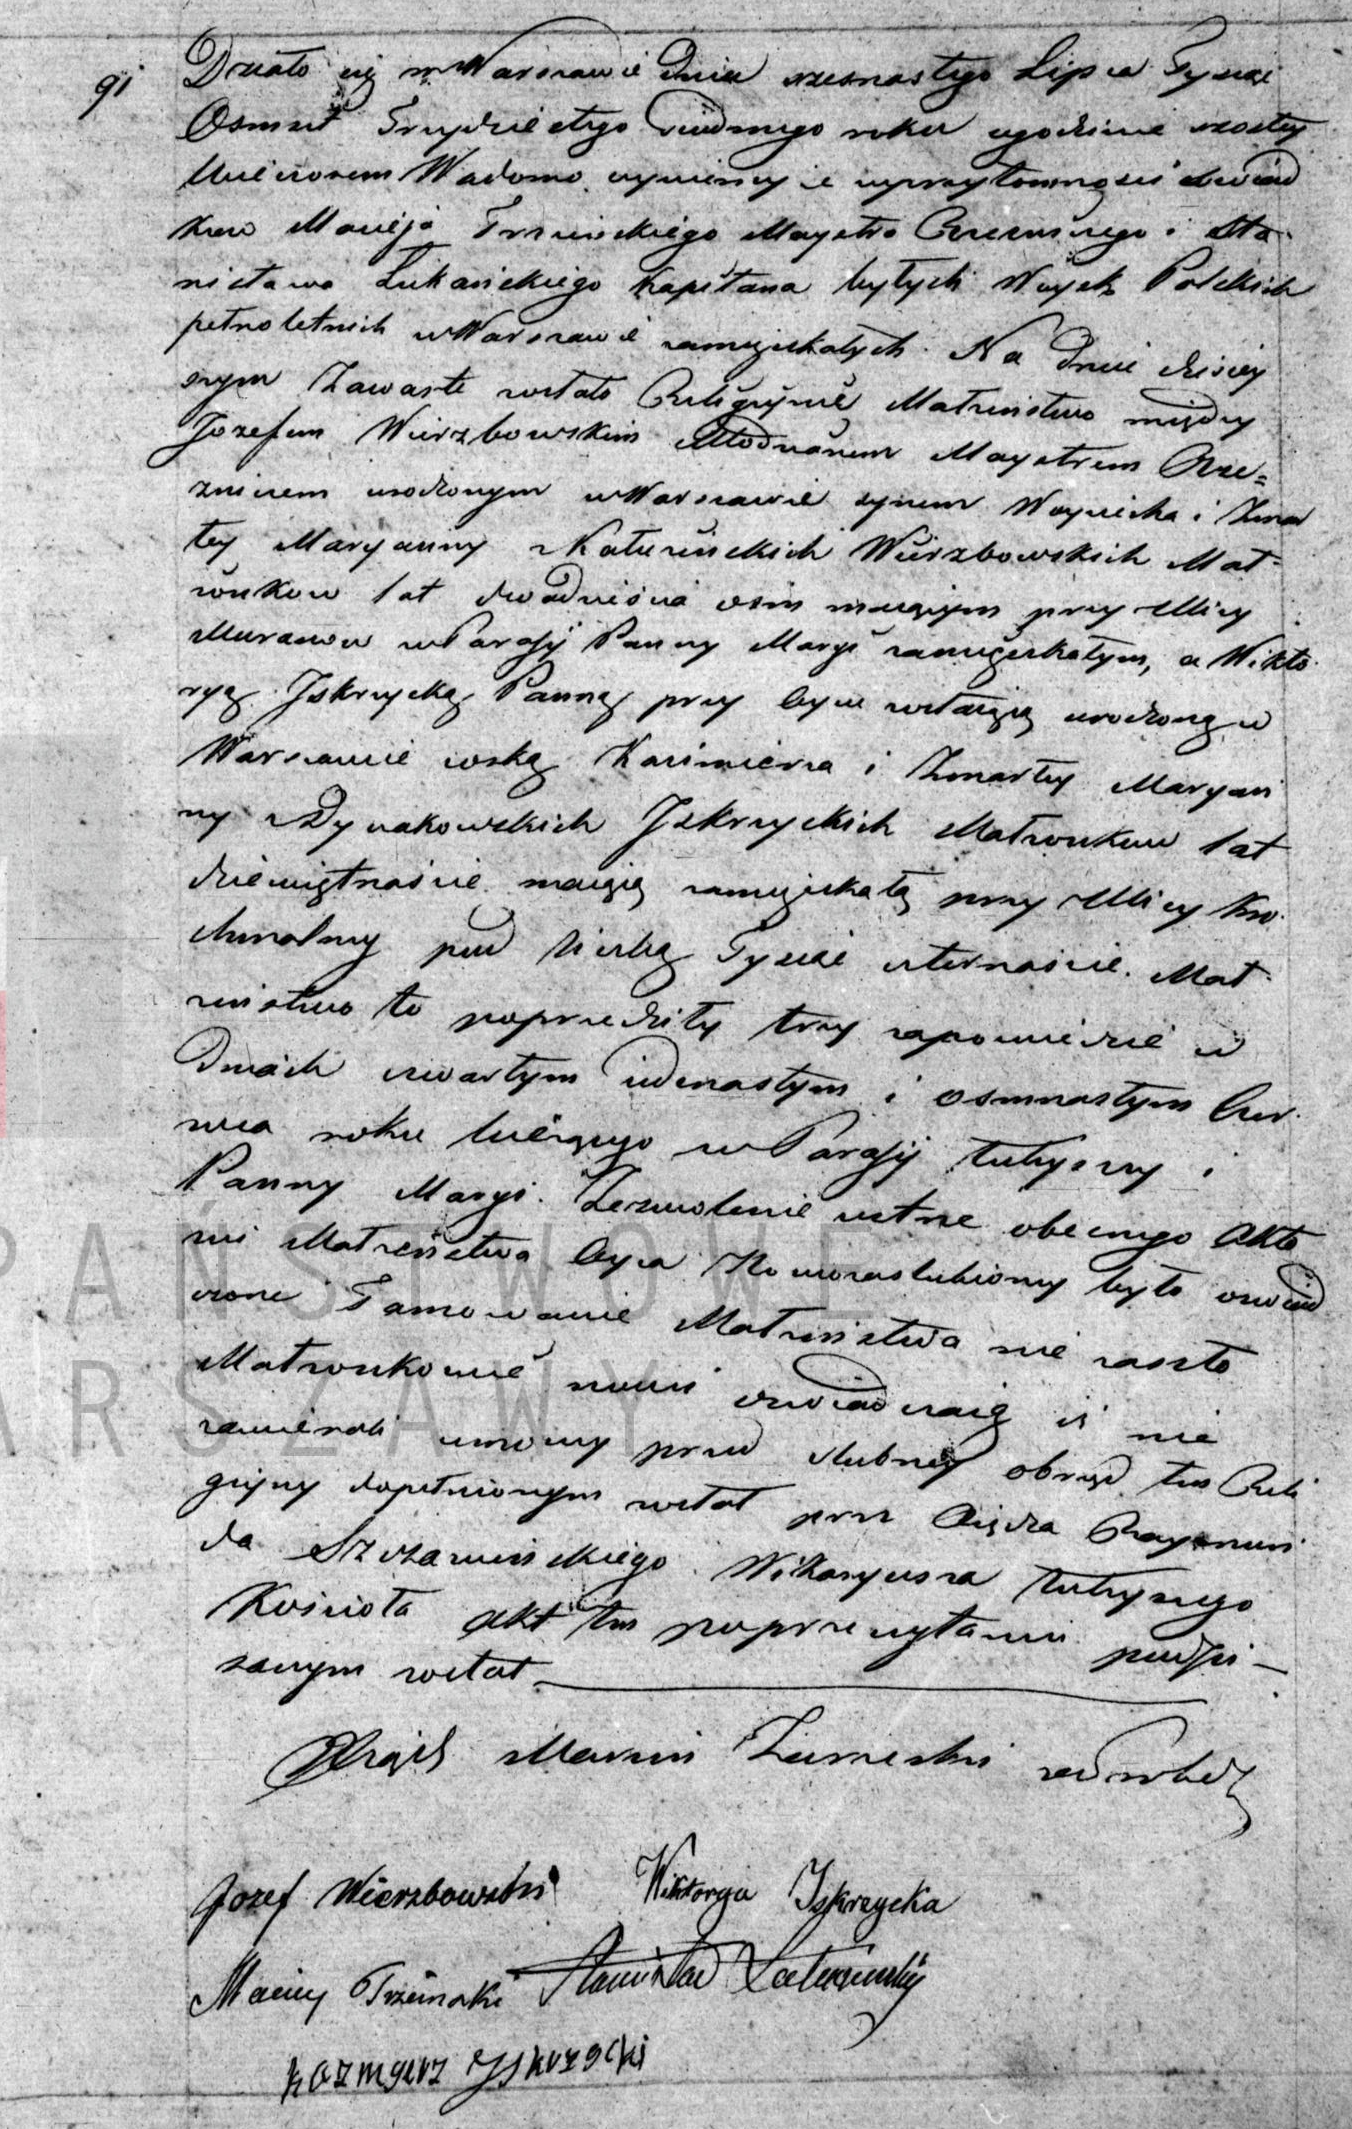 91
Działo się w Warszawie dnia szesnastego Lipca Tysiąc
Osmset Trzydziestego siódmego roku o godzinie szostey
Wieczorem Wiadomo czyniemy iż w przytomności świad
kow Macieja Trzcińskiego Maystra Rzeźniczego i Sta
nisława Kapitana byłych Woysk Polskich
pełnoletnich w Warszawie zamieszkałych. Na dniu dzisiey
szym Zawarte zostało Religijne Małżeństwo między
Jozefem Wierzbowskim Młodzianem Maystrem Rze=
źniczem urodzonym w Warszawie synem Woyciecha i Zmar
łey Maryanny z Wierzbowskich Mał
żonkow lat dwadzieścia osim maiącym przy Ulicy
Muranow w Parafij Panny Maryi zamieszkałym, a Wikto
ryą Jskrzycką Panną przy Oycu zostaiącą urodzoną w
Warszawie corką Kazimierza i Zmarłey Maryan
ny z Jskrzyckich Małżonkow lat
dziewiętnaście maiącą zamieszkałą przy Ulicy Kro
chmalney pod liczbą Tysiąc czternaście. Mał
żeństwo to poprzedziły trzy zapowiedzie w
Dniach czwartym iedenastym i osmnastym Czer
wca roku bieżącego w Parafij tuteyszey i
Panny Maryi. Zezwolenie ustne obecnego Akto
wi Małżeństwa Oyca Nowozaslubioney było oswiad
czone Tamowanie Małżeństwa nie zaszło
Małżonkowie nowi oswiadczaią iż nie
zawierali umowy przed slubney obrząd ten Reli
gijny dopełnionym został przez Xiędza Raymun
da Szczawińskiego Wikaryusza tuteyszego
Kościoła Akt ten po przeczytaniu podpi-
sanym został
Marcin
Jozef Wierzbowski Wiktorya Jskrzycka
Maciey Trzcinski Stanisław
Kazmyerz Jskrzycki
PAŃSTWOWE
WARSZAWY